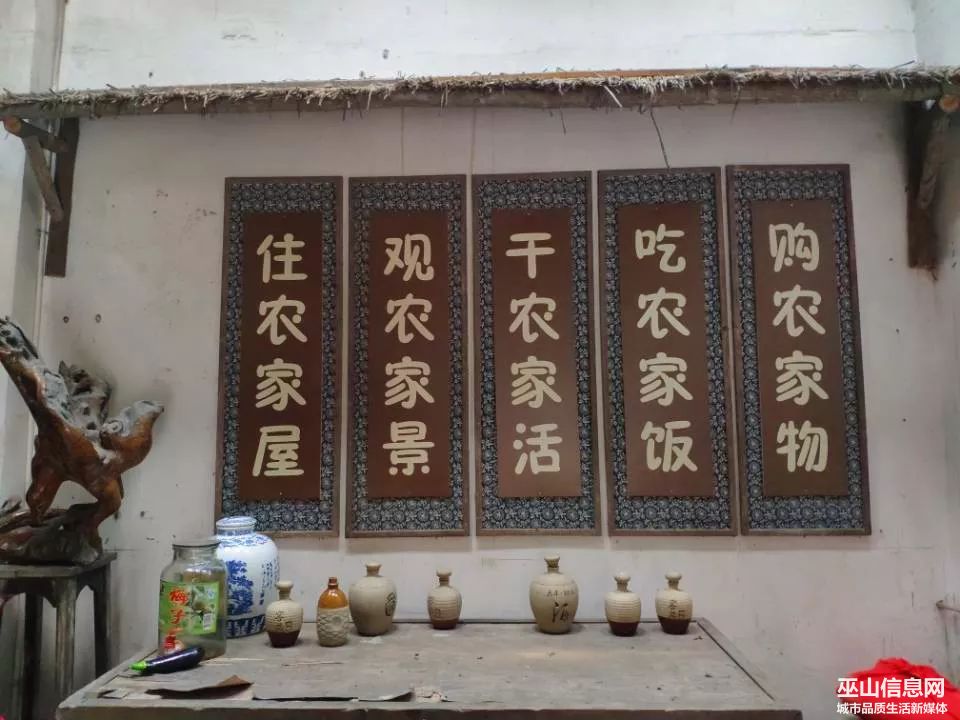 住农家屋
观农家景
干农家活
吃农家饭
购农家物
酒
巫山信息网
城市品质生活新媒体